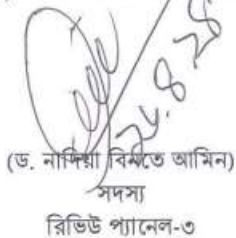 (ড. নাদিয়া বিনতে আমিন)
সদস্য
রিভিউ প্যানেল-৩